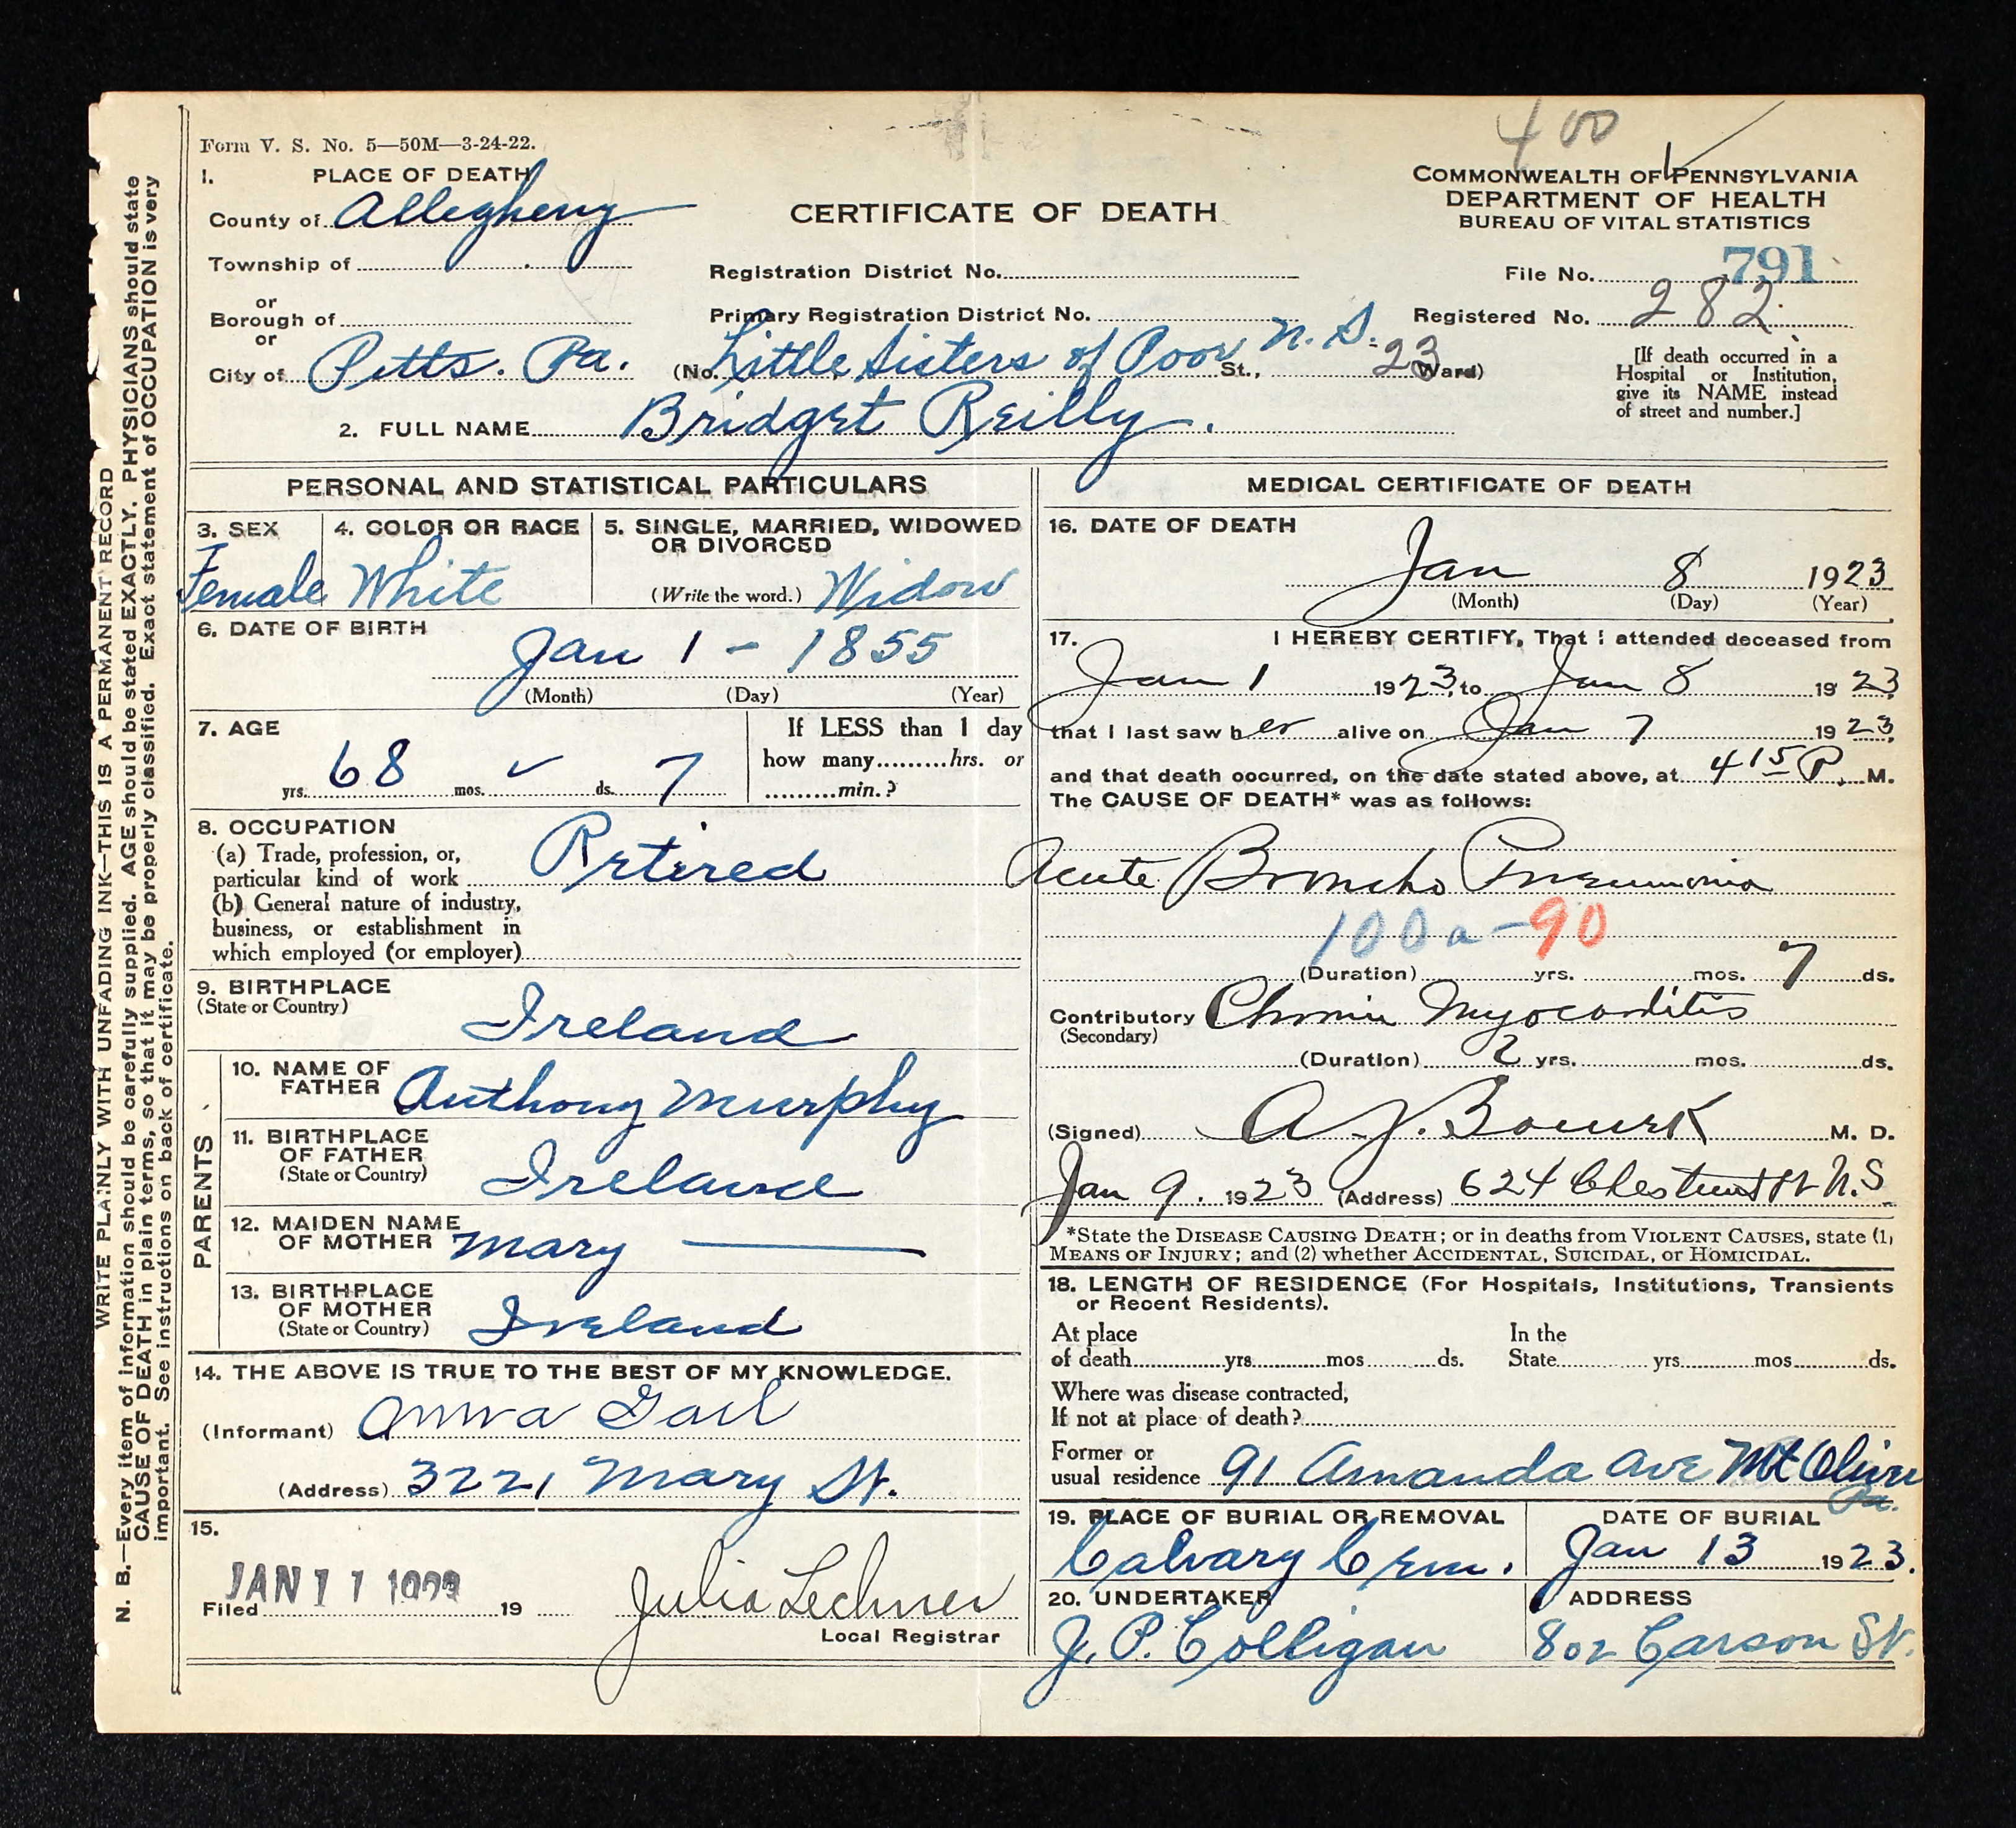 400
Form V. S. No. 5—50M—3-24-22.
1. PLACE OF DEATH
County of Allegheny
Township of
or
Borough of
or
City of Pitts. Pa.
CERTIFICATE OF DEATH
Registration District No.
Primary Registration District No.
(No. Little Sisters of Poor N. S. St., 23 Ward)
COMMONWEALTH OF PENNSYLVANIA
DEPARTMENT OF HEALTH
BUREAU OF VITAL STATISTICS
File No. 791
Registered No. 282
[If death occurred in a
Hospital or Institution,
give its NAME instead
of street and number.]
2. FULL NAME Bridget Reilly.
PERSONAL AND STATISTICAL PARTICULARS
3. SEX
Female
4. COLOR OR RACE
White
5. SINGLE, MARRIED, WIDOWED
OR DIVORCED
(Write the word.) Widow
6. DATE OF BIRTH
Jan 1 - 1855
(Month) (Day) (Year)
7. AGE
yrs. 68 mos. ✓ ds. 7
If LESS than 1 day
how many.........hrs. or
.........min.?
8. OCCUPATION
(a) Trade, profession, or,
particular kind of work Retired
(b) General nature of industry,
business, or establishment in
which employed (or employer)
9. BIRTHPLACE
(State or Country)
Ireland
PARENTS
10. NAME OF
FATHER Anthony Murphy
11. BIRTHPLACE
OF FATHER
(State or Country) Ireland
12. MAIDEN NAME
OF MOTHER Mary ———
13. BIRTHPLACE
OF MOTHER
(State or Country) Ireland
14. THE ABOVE IS TRUE TO THE BEST OF MY KNOWLEDGE.
(Informant) Anna Gail
(Address) 3221 Mary St.
15.
Filed JAN 11 1923 19
Julia Lechner
Local Registrar
MEDICAL CERTIFICATE OF DEATH
16. DATE OF DEATH
Jan 8 1923
(Month) (Day) (Year)
17. I HEREBY CERTIFY, That I attended deceased from
Jan 1 1923, to Jan 8 1923,
that I last saw her alive on Jan 7 1923,
and that death occurred, on the date stated above, at 4 15 P. M.
The CAUSE OF DEATH* was as follows:
Acute Broncho Pneumonia
100a-90
(Duration) yrs. mos. 7 ds.
Contributory Chronic Myocarditis
(Secondary)
(Duration) 2 yrs. mos. ds.
(Signed) A. J. Bourk M. D.
Jan 9. 1923 (Address) 624 Chestnut St N.S.
*State the DISEASE CAUSING DEATH; or in deaths from VIOLENT CAUSES, state (1,
MEANS OF INJURY; and (2) whether ACCIDENTAL, SUICIDAL, or HOMICIDAL.
18. LENGTH OF RESIDENCE (For Hospitals, Institutions, Transients
or Recent Residents).
At place
of death yrs mos ds.
In the
State yrs mos ds.
Where was disease contracted,
If not at place of death?
Former or
usual residence 91 Amanda Ave Mt Oliver
Pa.
19. PLACE OF BURIAL OR REMOVAL
Calvary Cem.
DATE OF BURIAL
Jan 13 1923.
20. UNDERTAKER
J. P. Colligan
ADDRESS
802 Carson St.
WRITE PLAINLY WITH UNFADING INK—THIS IS A PERMANENT RECORD
N. B.—Every item of information should be carefully supplied. AGE should be stated EXACTLY. PHYSICIANS should state
CAUSE OF DEATH in plain terms, so that it may be properly classified. Exact statement of OCCUPATION is very
important. See instructions on back of certificate.